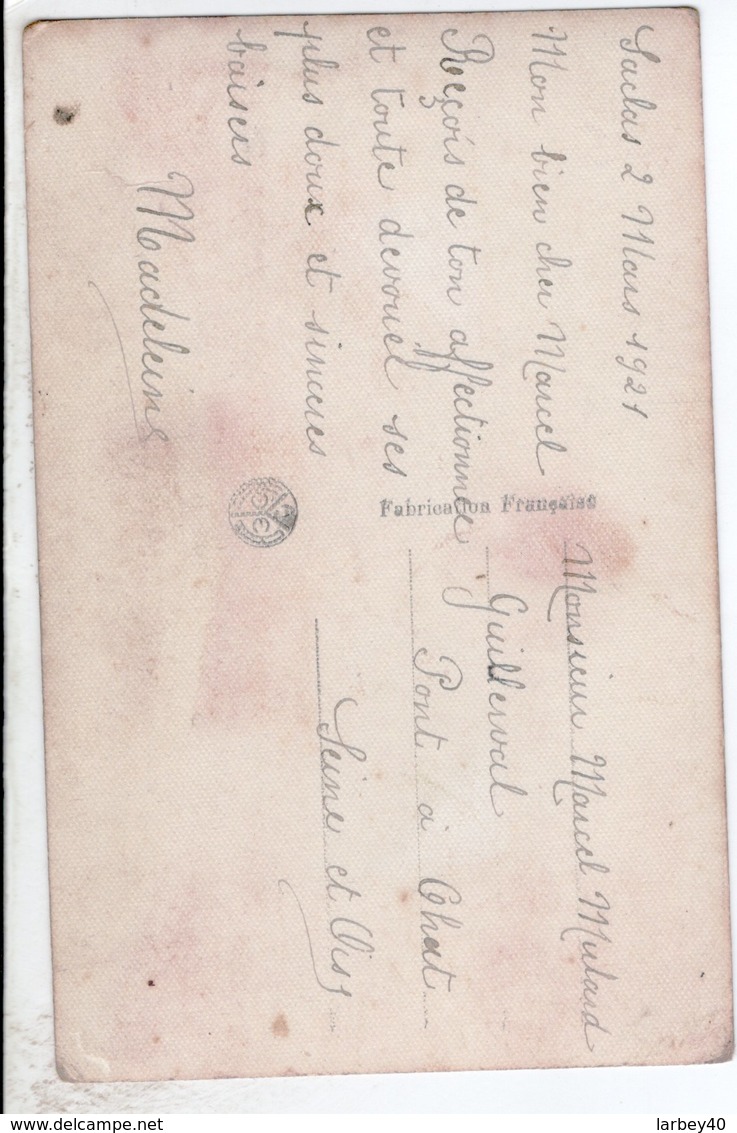 Saclas 2 Mars 1921
Mon bien cher Marcel
Reçois de ton affectionnée
et toute devouel ses
plus doux et sinceres
baisers
Madeleine
Fabrication Française
Monsieur Marcel Mulard
Guillerval
Pont à Chat
Seine et Oise
larbey40